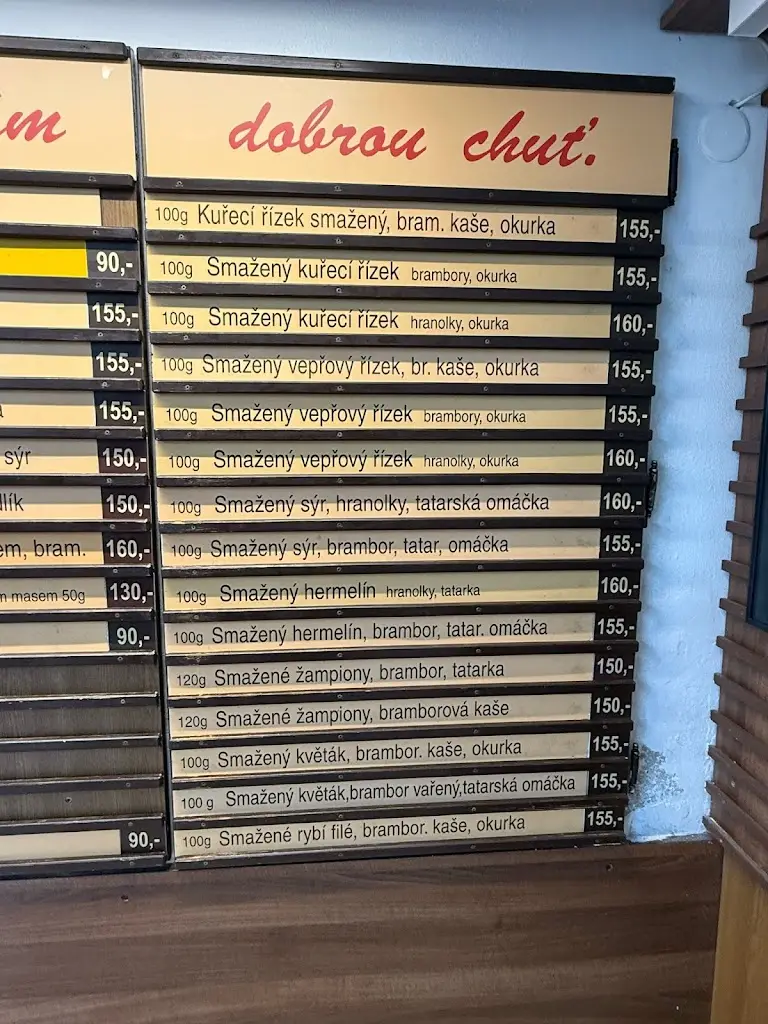 dobrou chuť.
100g Kuřecí řízek smažený, bram. kaše, okurka 155,-
100g Smažený kuřecí řízek brambory, okurka 155,-
100g Smažený kuřecí řízek hranolky, okurka 160,-
100g Smažený vepřový řízek, br. kaše, okurka 155,-
100g Smažený vepřový řízek brambory, okurka 155,-
100g Smažený vepřový řízek hranolky, okurka 160,-
100g Smažený sýr, hranolky, tatarská omáčka 160,-
100g Smažený sýr, brambor, tatar, omáčka 155,-
100g Smažený hermelín hranolky, tatarka 160,-
100g Smažený hermelín, brambor, tatar. omáčka 155,-
120g Smažené žampiony, brambor, tatarka 150,-
120g Smažené žampiony, bramborová kaše 150,-
100g Smažený květák, brambor. kaše, okurka 155,-
100 g Smažený květák,brambor vařený,tatarská omáčka 155,-
100g Smažené rybí filé, brambor. kaše, okurka 155,-
90,-
155,-
155,-
155,-
sýr 150,-
150,-
bram. 160,-
masem 50g 130,-
90,-
90,-